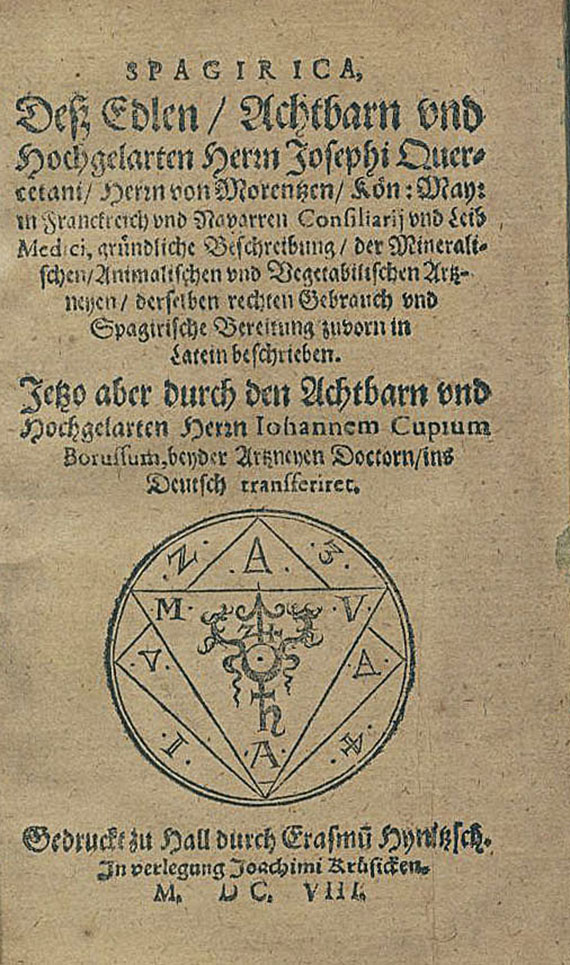 SPAGIRICA,
Deß Edlen / Achtbarn vnd
Hochgelarten Herrn Josephi Quer-
cetani/ Herrn von Morentzen/ Kön: May:
in Franckreich vnd Navarren Consiliarij vnd Leib
Medici, gründliche Beschreibung / der Minerali-
schen/Animalischen vnd Vegetabilischen Artz-
neyen / derselben rechten Gebrauch vnd
Spagirische Bereitung zuvorn in
Latein beschrieben.
Jetzo aber durch den Achtbarn vnd
Hochgelarten Herrn Iohannem Cupium
Borussum, beyder Artzneyen Doctorn/ins
Deutsch transferiret.
Z A 3
M V
V A
I A 4
Gedruckt zu Hall durch Erasmū Hynitzsch.
In verlegung Joachimi Krüsicken.
M. DC. VIII.